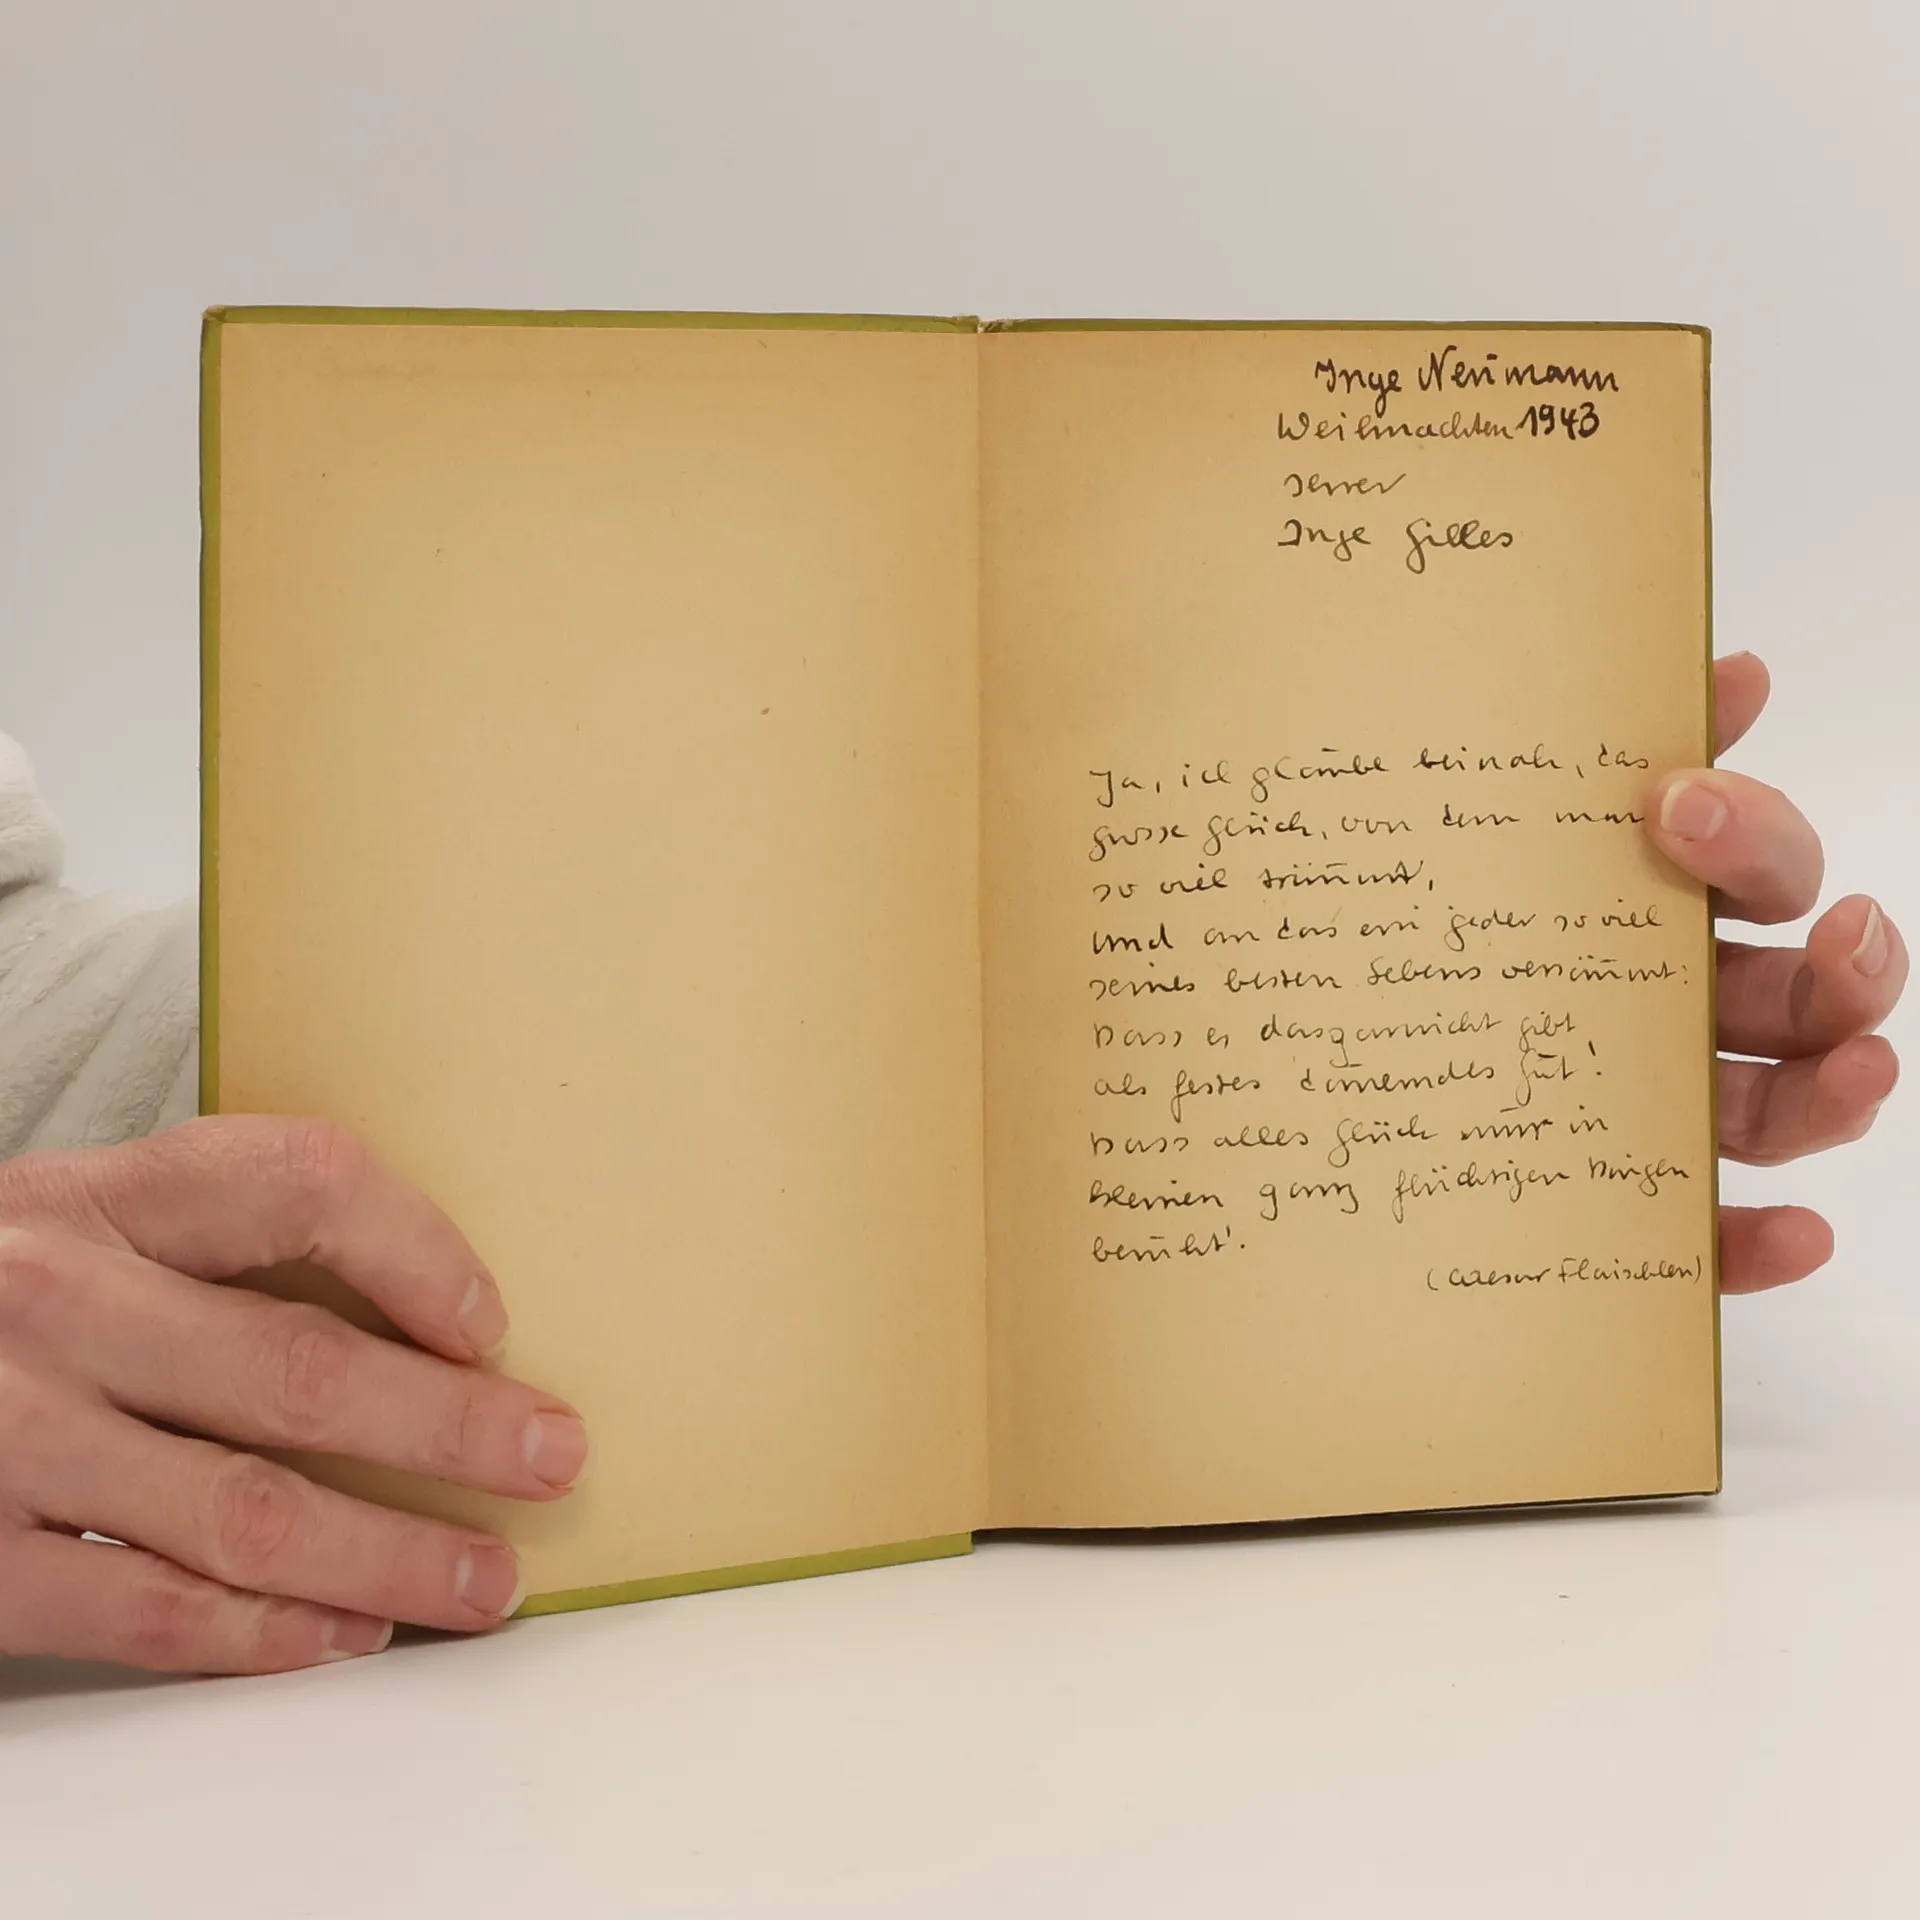 Inge Neumann
Weihnachten 1943
seiner
Inge Gilles
Ja, ich glaube beinah, das
grosse Glück, von dem man
so viel träumt,
und an das ein jeder so viel
seines besten Lebens versäumt:
Dass es das garnicht gibt
als festes dauerndes Gut!
Dass alles Glück nur in
kleinen ganz flüchtigen Dingen
beruht!.
(Caesar Flaischlen)